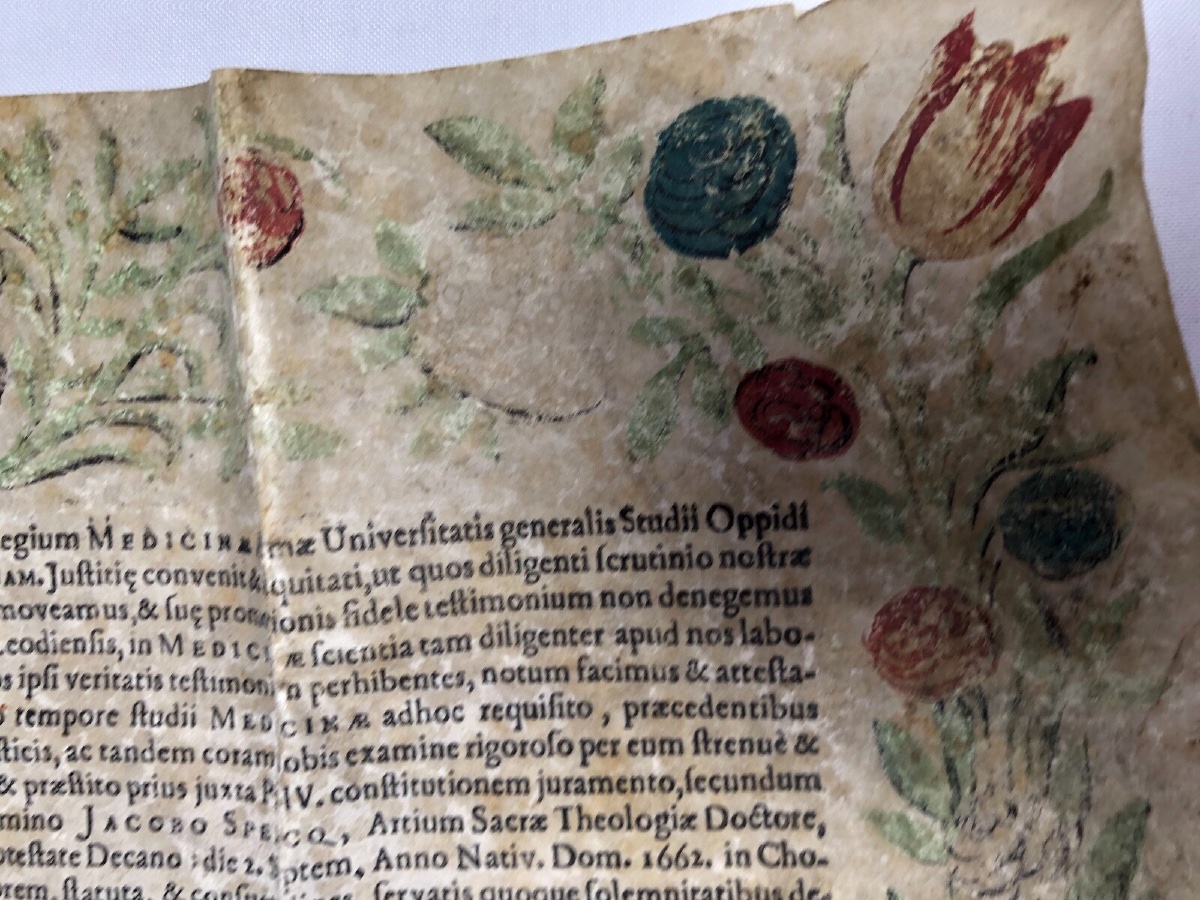 egium MEDICINAmæ Univerſitatis generalis Studii Oppidi
AM. Juſtitię convenit & quitati, ut quos diligenti ſcrutinio noſtræ
moveamus, & ſuę promionis fidele teſtimonium non denegemus
codienſis, in MEDICI æ ſcientia tam diligenter apud nos labo-
s ipſi veritatis teſtimonin perhibentes, notum facimus & atteſta-
tempore ſtudii MEDICINÆ adhoc requiſito, præcedentibus
ſticis, ac tandem coram obis examine rigoroſo per eum ſtrenuè &
& præſtito prius juxta P IV. conſtitutionem juramento, ſecundum
mino JACOBO SPECQ, Artium Sacræ Theologiæ Doctore,
oteſtate Decano: die 2. Sptem, Anno Nativ. Dom. 1662. in Cho-
orem, ſtatuta, & ſervatis quoque ſolemnitatibus de-